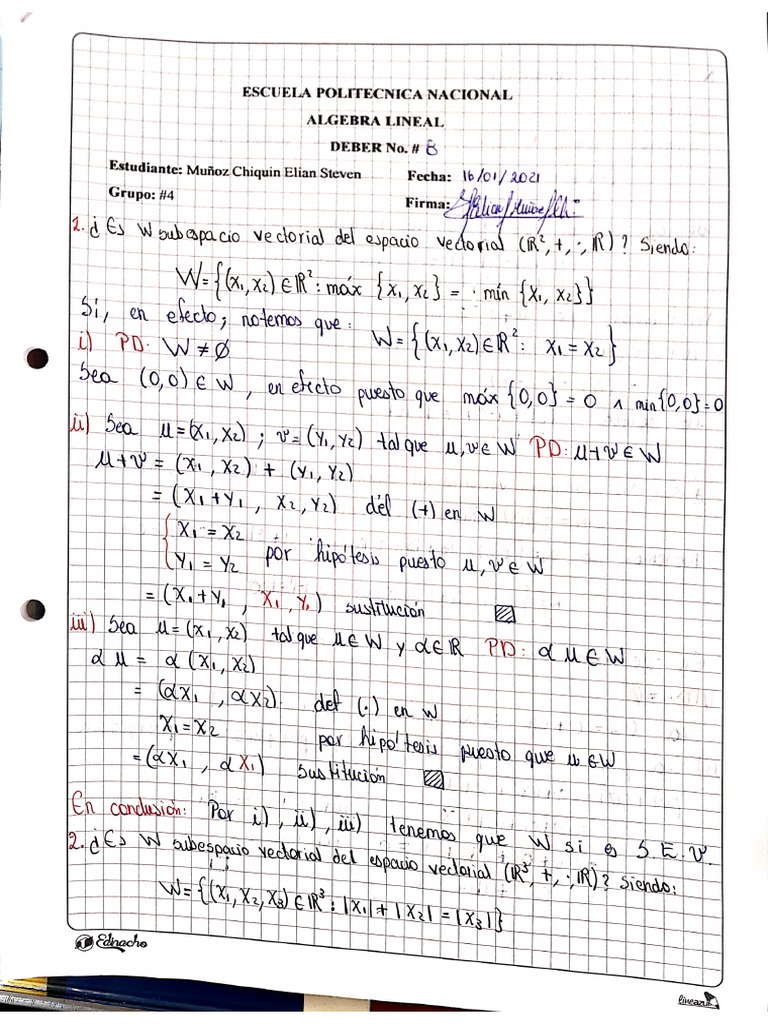 ESCUELA POLITECNICA NACIONAL
ALGEBRA LINEAL
DEBER No. # 8
Estudiante: Muñoz Chiquin Elian Steven Fecha: 16/01/2021
Grupo: #4 Firma:
1. ¿Es W subespacio vectorial del espacio vectorial (ℝ², +, ·, ℝ)? Siendo:
W = {(x₁, x₂) ∈ ℝ² : máx {x₁, x₂} = mín {x₁, x₂}}
Si, en efecto; notemos que: W = {(x₁, x₂) ∈ ℝ² : x₁ = x₂}
i) PD: W ≠ ∅
Sea (0,0) ∈ W, en efecto puesto que máx {0,0} = 0 ∧ min {0,0} = 0
ii) Sea u = (x₁, x₂) ; v = (y₁, y₂) tal que u, v ∈ W PD: u + v ∈ W
u + v = (x₁, x₂) + (y₁, y₂)
= (x₁ + y₁ , x₂, y₂) def (+) en W
{ x₁ = x₂
{ y₁ = y₂ por hipótesis puesto u, v ∈ W
= (x₁ + y₁ , x₁, y₁) sustitución
iii) Sea u = (x₁, x₂) tal que u ∈ W y α ∈ ℝ PD: α u ∈ W
α u = α (x₁, x₂)
= (αx₁ , αx₂) def (·) en W
x₁ = x₂ por hipótesis puesto que u ∈ W
= (αx₁ , αx₁) sustitución
En conclusión: Por i), ii), iii) tenemos que W si es S.E.V.
2. ¿Es W subespacio vectorial del espacio vectorial (ℝ³, +, ·, ℝ)? Siendo:
W = {(x₁, x₂, x₃) ∈ ℝ³ : |x₁| + |x₂| = |x₃|}
Ednacho
linear